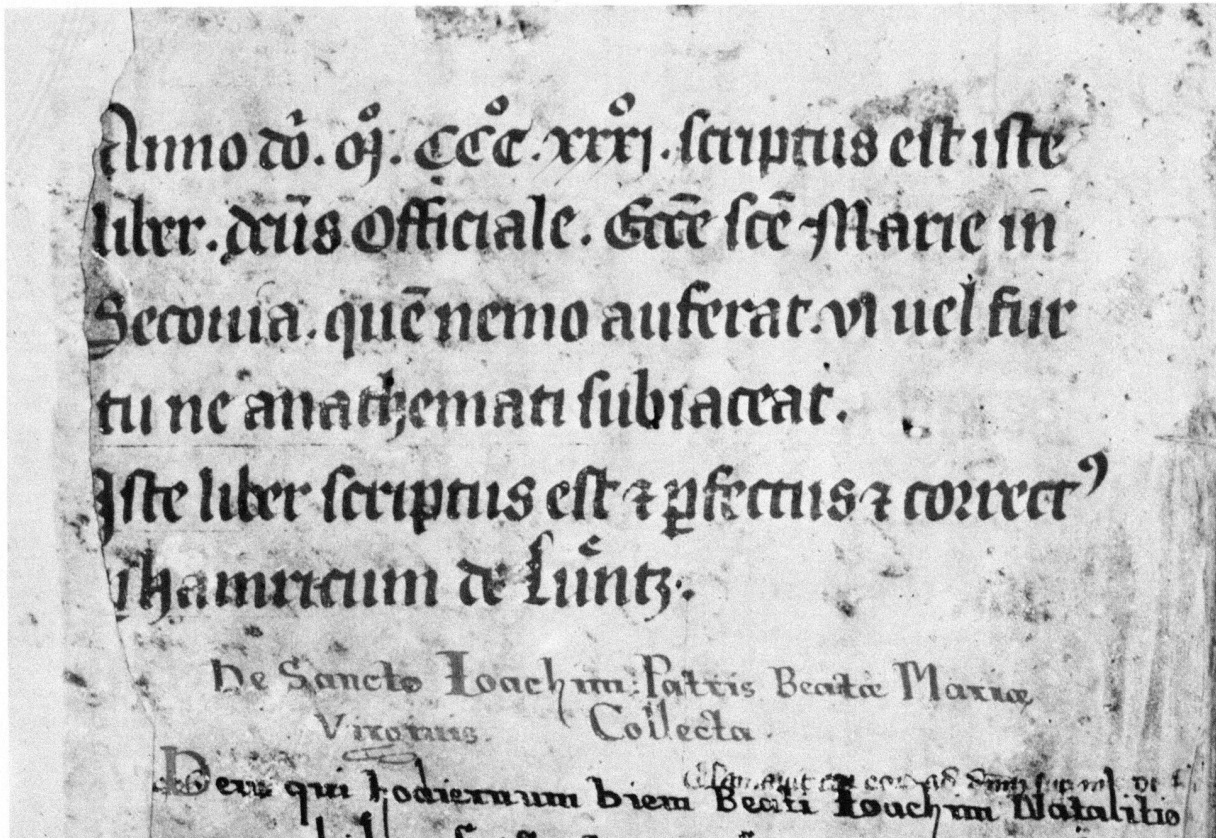 Anno dō. oͦɉ. CCͦC. xxxͦɉ. scriptus est iste
liber. dcūs Officiale. Eccē scē Marie in
Secouia. quē nemo auferat. vi uel fur
tu ne anathemati subiaceat.
Iste liber scriptus est ⁊ ꝑfectus ⁊ correctꝰ
hainricum de Luͤntz.
De Sancto Ioachim: Patris Beatæ Mariæ
Virginis. Collecta.
Deus qui hodiernum diem Beati Ioachim Natalitio